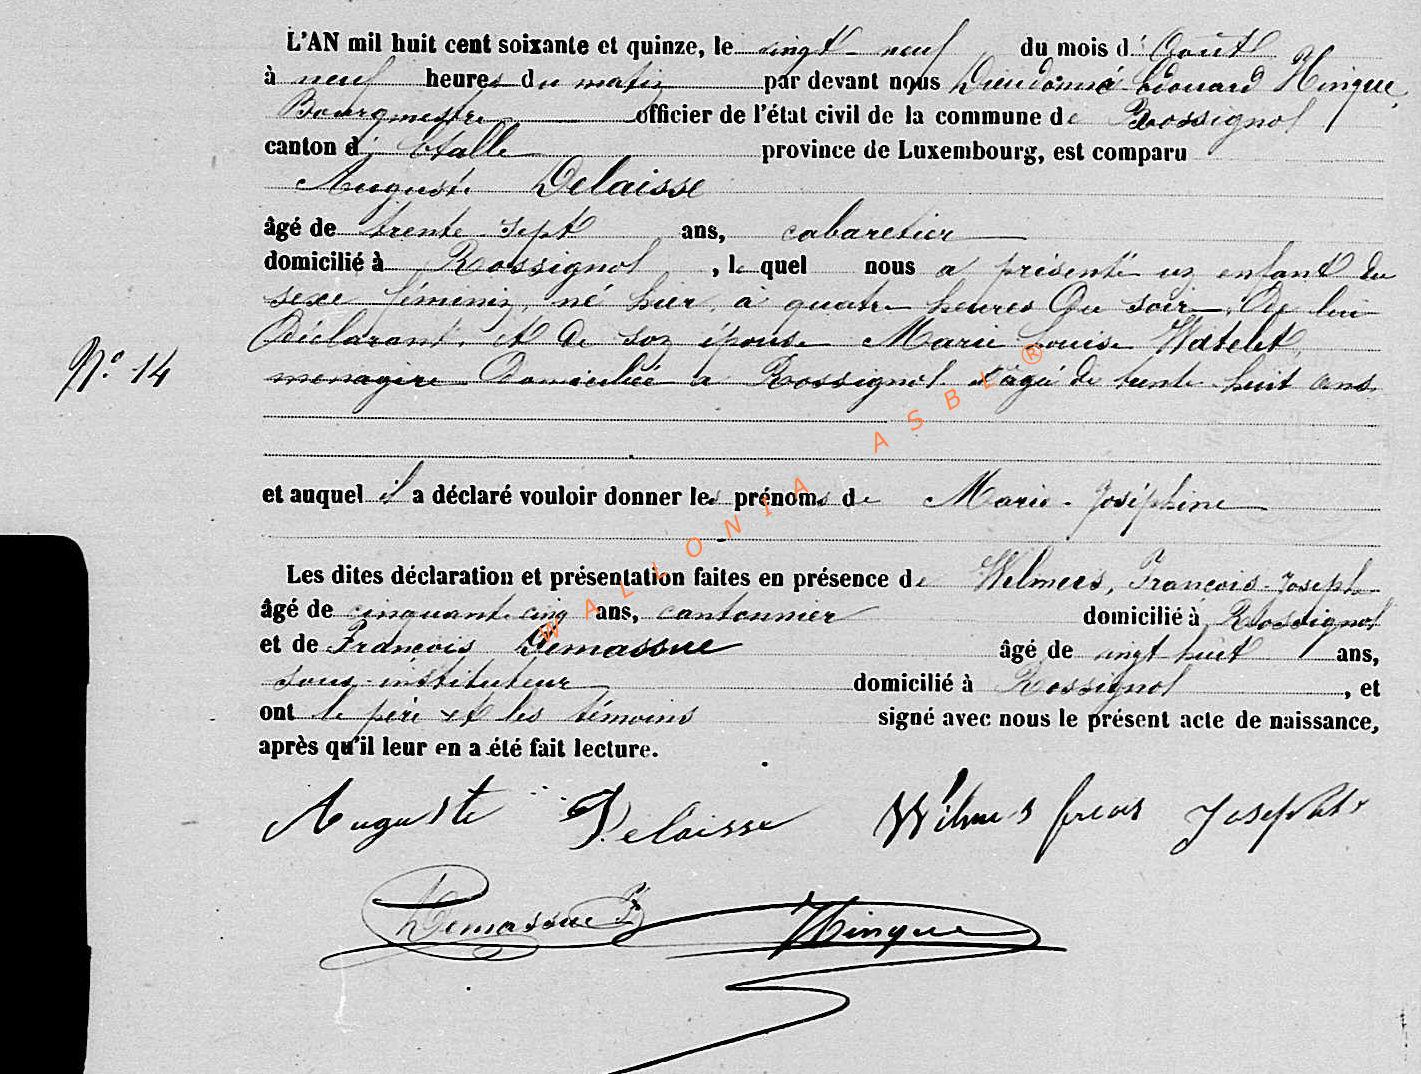 L'AN mil huit cent soixante et quinze, le vingt-neuf du mois d' Août
à neuf heures du matin par devant nous Dieudonné Edouard Hinque,
Bourgmestre officier de l'état civil de la commune de Rossignol
canton d' Etalle province de Luxembourg, est comparu
Auguste Delaisse
âgé de trente-sept ans, cabaretier
domicilié à Rossignol, le quel nous a présenté un enfant du
sexe féminin, né hier, à quatre heures du soir, de lui
déclarant, et de son épouse Marie Louise Watelet,
N° 14
menagère domiciliée a Rossignol et agée de trente huit ans
et auquel il a déclaré vouloir donner les prénoms de Marie-Joséphine
Les dites déclaration et présentation faites en présence de Welmers, François-Joseph
âgé de cinquante cinq ans, cantonnier domicilié à Rossignol
et de François Demassue âgé de vingt huit ans,
sous-instituteur domicilié à Rossignol, et
ont le père et les témoins signé avec nous le présent acte de naissance,
après qu'il leur en a été fait lecture.
Auguste Delaisse Joseph
Demassue F Hinque
WALLONIA ASBL ®